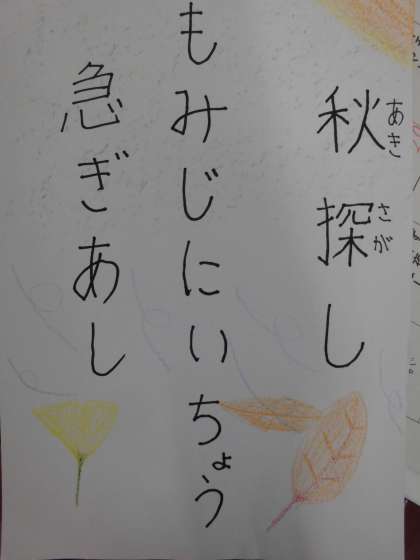 秋探し
あき
さが
もみじにいちょう
急ぎあし